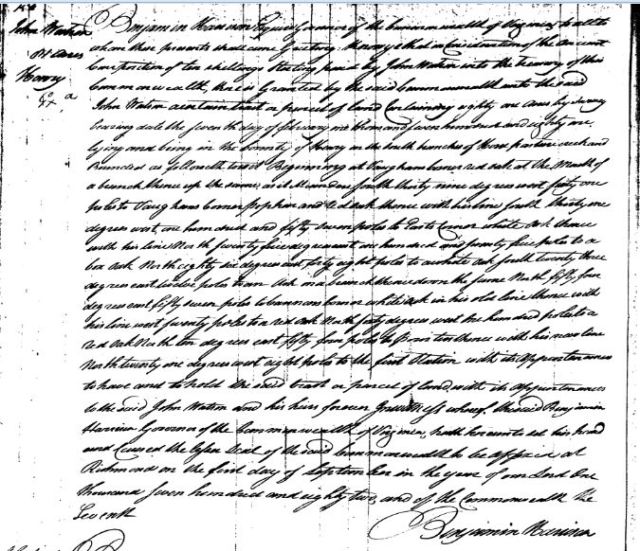 John Watson
81 Acres
Henry
Benjamin Harrison Esquire Governor of the Commonwealth of Virginia, to all to
whom these presents shall come Greeting Know ye that in Consideration of the Ancient
Composition of Ten shillings Sterling paid by John Watson into the Treasury of this
Commonwealth, there is Granted by the said Commonwealth unto the said
John Watson a certain tract or parcel of Land Containing eighty one Acres by Survey
bearing date the seventh day of one thousand seven hundred and eighty one,
lying and being in the County of Henry on the South branches of Horse pasture creek and
bounded as followeth towit Beginning at red oak at the Mouth of
a branch thence up the same as it Meanders South thirty nine degrees west forty one
poles to Vaughans Corner and Red oak thence with his line South thirty one
degrees west one hundred and fifty seven poles to Corner white oak thence
with his line North Seventy five degrees west one hundred and seventy five poles to a
box oak North eighty six degrees east forty eight poles to a white oak South twenty three
degrees east twelve poles to an oak on a branch thence down the same North fifty four
degrees east fifty seven poles to Corner white oak in his old line thence with
his line west Twenty poles to a red oak North forty degrees west One hundred poles to a
red oak North ten degrees east fifty four poles to thence with his new line
North twenty one degrees west eight poles to the first Station with its Appurtenances
to have and to hold the said tract or parcel of land with its Appurtenances
to the said John Watson and his heirs forever In witness whereof the said Benjamin
Harrison Governor of the Commonwealth of Virginia, hath hereunto set his hand
and Caused the lesser Seal of the said Commonwealth to be affixed at
Richmond on the first day of September in the year of our Lord One
thousand Seven hundred and eighty two, and of the Commonwealth the
Seventh
Benjamin Harrison